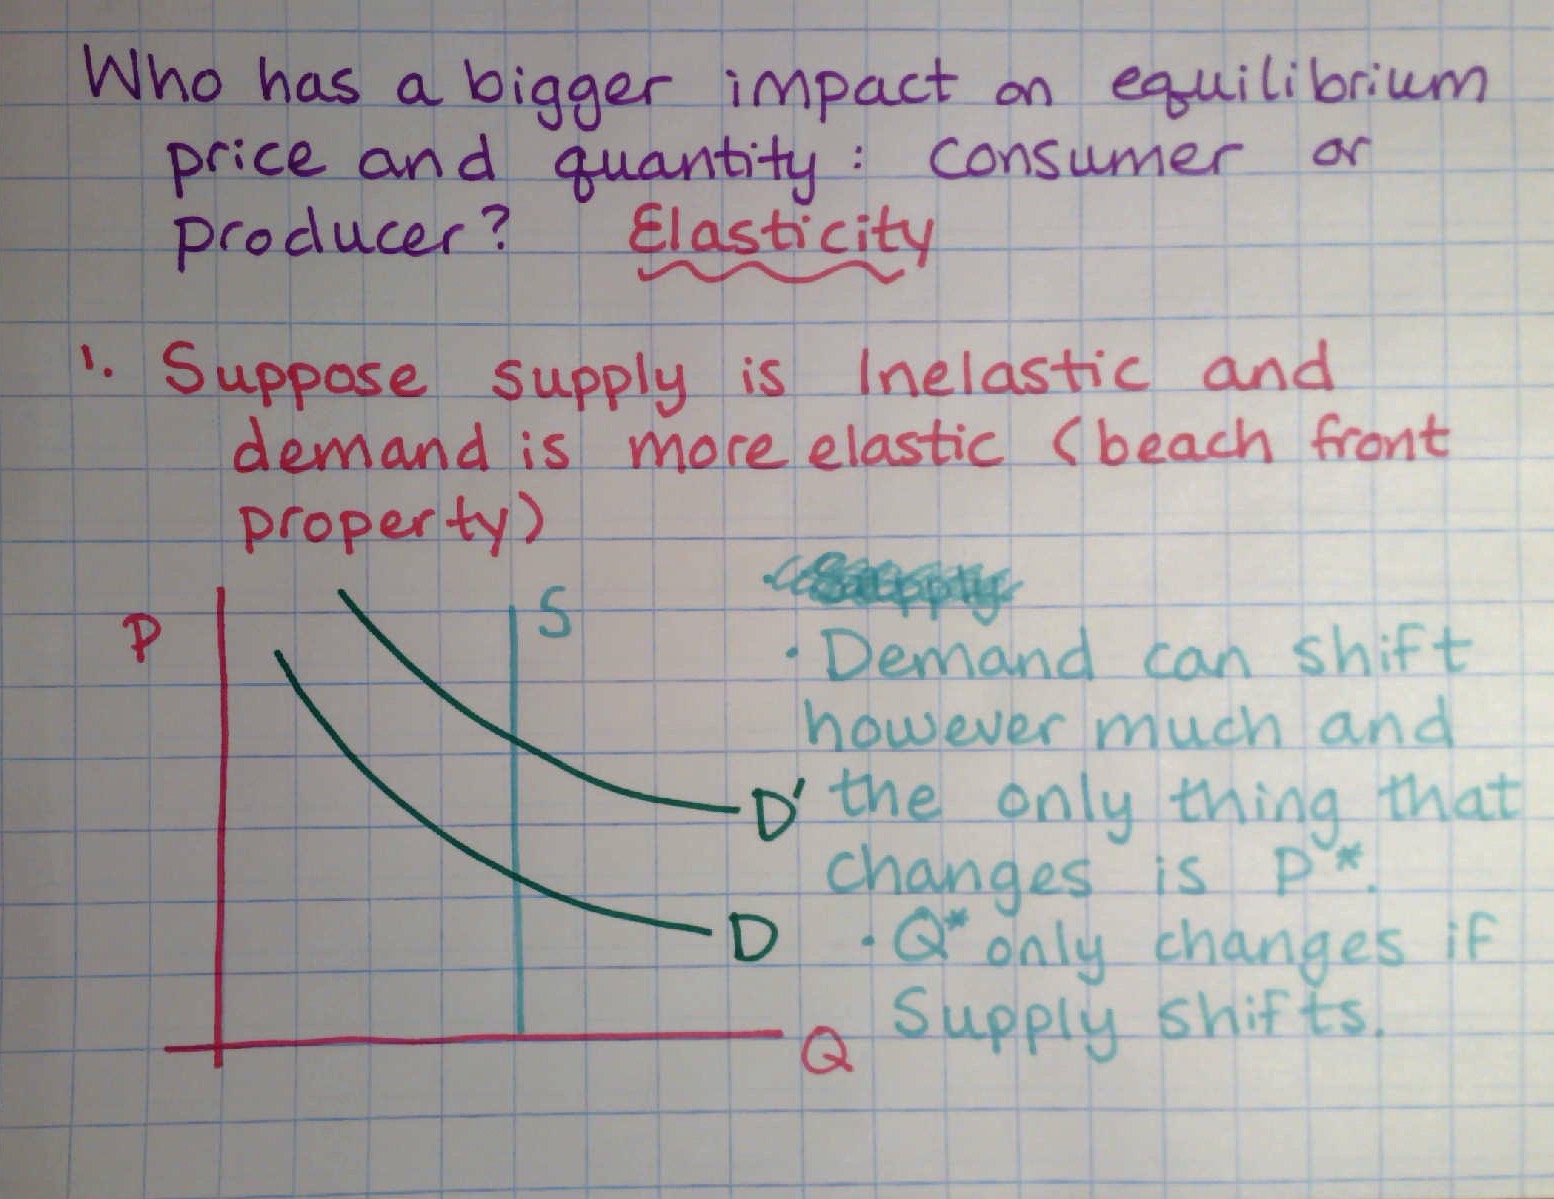 Who has a bigger impact on equilibrium
price and quantity: consumer or
producer? Elasticity
1. Suppose supply is Inelastic and
demand is more elastic (beach front
property)
P
S
· Demand can shift
however much and
D' the only thing that
changes is P*.
D · Q* only changes if
Supply shifts.
Q